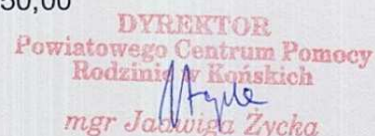 50,00
DYREKTOR
Powiatowego Centrum Pomocy
Rodzinie w Końskich
mgr Jadwiga Życka